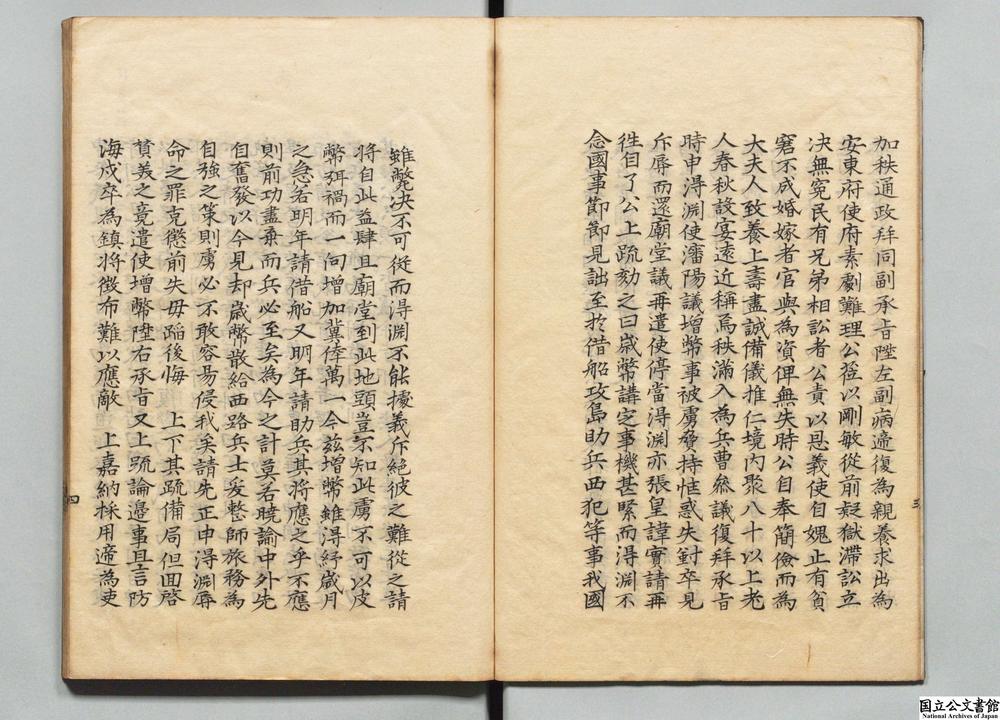 加秩通政拜同副承旨陞左副病遞復為親養求出為
安東府使府素劇難理公莅以剛敏從前疑獄滯訟立
决無冤民有兄弟相訟者公責以恩義使自媿止有貧
窘不成婚嫁者官與為資俾無失時公自奉簡儉而為
大夫人致養上壽盡誠備儀推仁境內聚八十以上老
人春秋設宴遠近稱焉秩滿入為兵曹參議復拜承旨
時申得淵使瀋陽議增幣事被虜脅持恇惑失對卒見
斥辱而還廟堂議再遣使停當得淵亦張皇諱實請再
徃自了公上疏劾之曰歲幣講定事機甚緊而得淵不
念國事節節見詘至於借船攻島助兵西犯等事我國
三
雖斃决不可從而得淵不能據義斥絕彼之難從之請
將自此益肆且廟堂到此地頭豈不知此虜不可以皮
幣弭禍而一向增加冀倖萬一今茲增幣雖得紓歲月
之急若明年請借船又明年請助兵其將應之乎不應
則前功盡棄而兵必至矣為今之計莫若曉諭中外先
自奮發以今見却歲幣散給西路兵士爰整師旅務為
自強之策則虜必不敢容昜侵我矣請先正申得淵辱
命之罪克懲前失毋蹈後悔　上下其疏備局但回啓
贊美之竟遣使增幣陞右承旨又上疏論邊事且言防
海戍卒為鎮將徵布難以應敵　上嘉納採用遞為吏
四
国立公文書館
National Archives of Japan